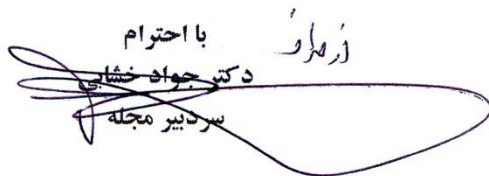 با احترام
از طرف
دکتر جواد خشابی
سردبیر مجله